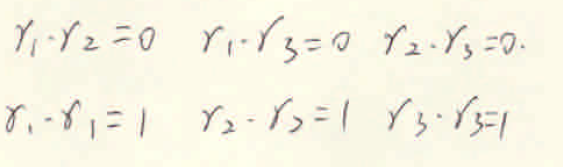 r₁·r₂=0 r₁·r₃=0 r₂·r₃=0.
r₁·r₁=1 r₂·r₂=1 r₃·r₃=1